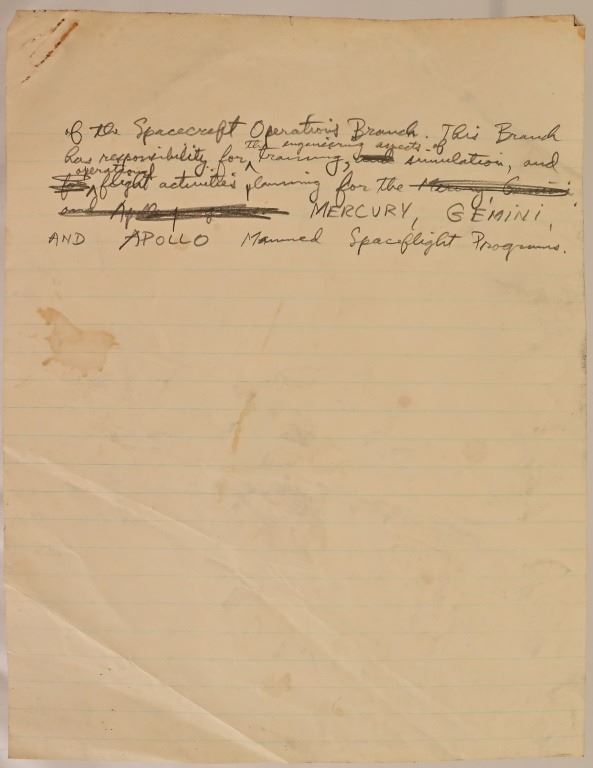 of the Spacecraft Operations Branch. This Branch
the engineering aspects of
has responsibility for training, and simulation, and
operational
for flight activities planning for the Mercury, Gemini
and Apollo programs MERCURY, GEMINI,
AND APOLLO Manned Spaceflight Programs.